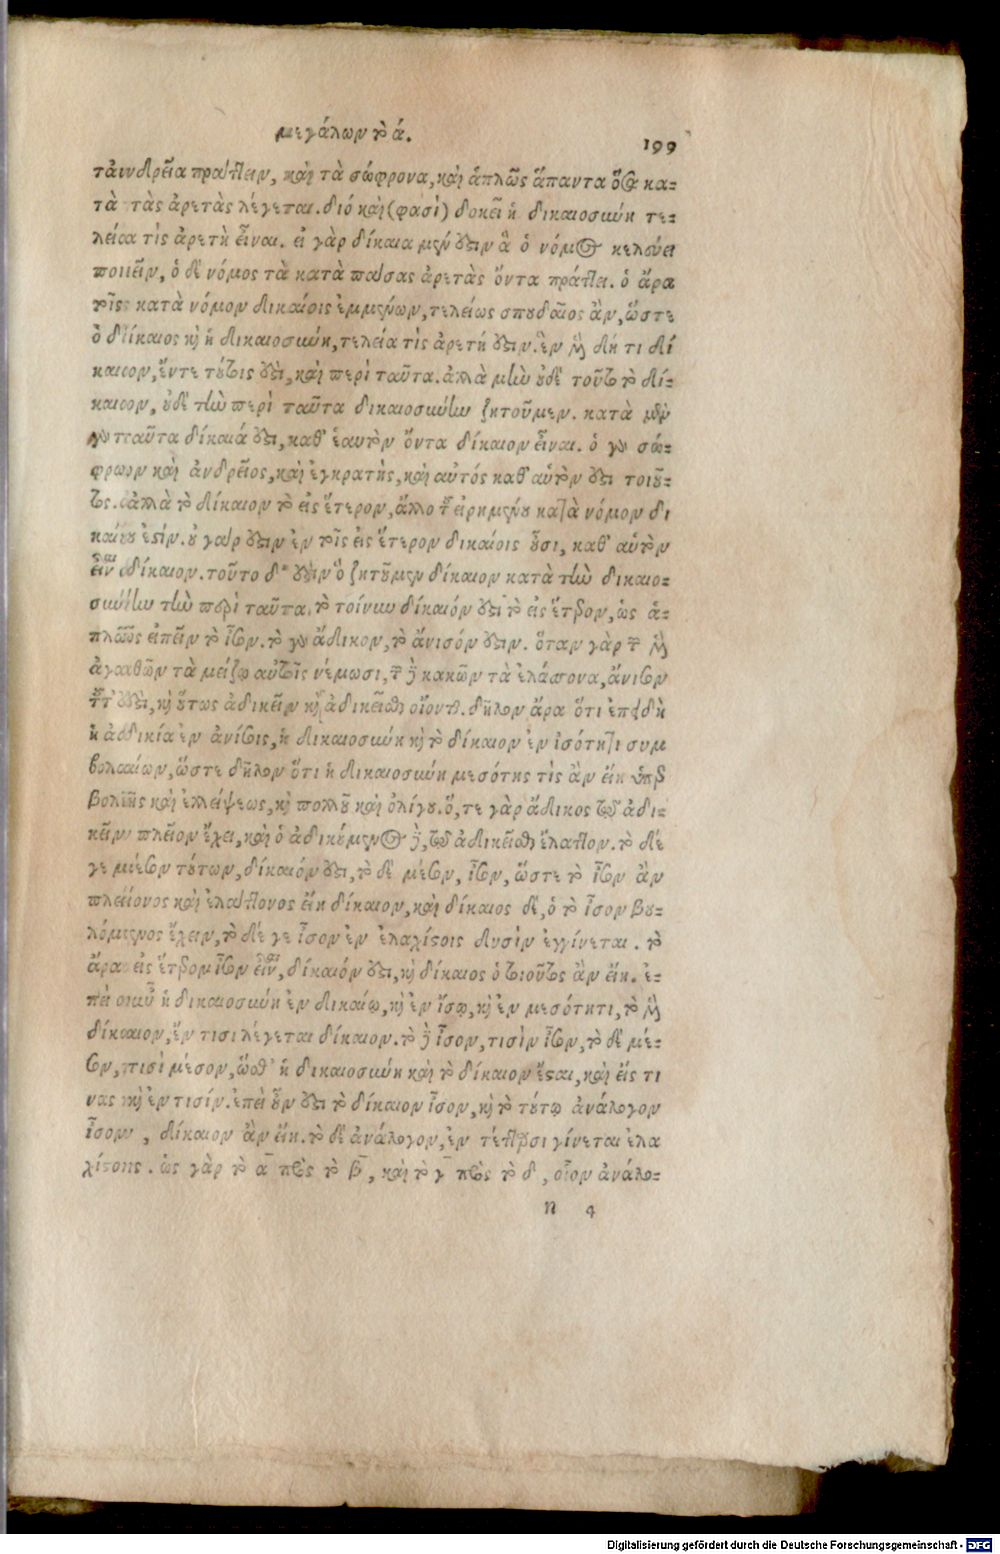 μεγάλων τὸ ά.
199
τἀνδρεῖα πράττειν, καὶ τὰ σώφρονα, καὶ ἁπλῶς ἅπαντα ὅσα κα-
τὰ τὰς ἀρετὰς λέγεται. διό καὶ (φασὶ) δοκεῖ ἡ δικαιοσύνη τε-
λεία τὶς ἀρετὴ εἶναι. εἰ γὰρ δίκαια μέν ἐστιν ἃ ὁ νόμος κελεύει
ποιεῖν, ὁ δὲ νόμος τὰ κατὰ πάσας ἀρετὰς ὄντα πράττει. ὁ ἄρα
τοῖς κατὰ νόμον δικαίοις ἐμμένων, τελείως σπουδαῖος ἂν, ὥστε
ὁ δίκαιος κὶ ἡ δικαιοσύνη, τελεία τὶς ἀρετή ἐστιν. ἓν μὲν δή τι δί
καιον, ἔντε τούτοις ἐστὶ, καὶ περὶ ταῦτα. ἀλλὰ μὴν οὐδὲ τοῦτο τὸ δί-
καιον, οὐδὲ τὴν περὶ ταῦτα δικαιοσύνην ζητοῦμεν. κατὰ μὲν
γὰρ ταῦτα δίκαιά ἐστι, καθ' ἑαυτὸν ὄντα δίκαιον εἶναι. ὁ γὰρ σώ-
φρων καὶ ἀνδρεῖος, καὶ ἐγκρατὴς, καὶ αὐτός καθ' αὑτὸν ἐστι τοιοῦ-
τος. ἀλλὰ τὸ δίκαιον τὸ εἰς ἕτερον, ἄλλο τοῦ εἰρημένου κατὰ νόμον δι
καίου ἐστίν. οὐ γὰρ ἔστιν ἐν τοῖς εἰς ἕτερον δικαίοις οὖσι, καθ' αὑτὸν
εἶναι δίκαιον. τοῦτο δ' ἐστὶν ὃ ζητοῦμεν δίκαιον κατὰ τὴν δικαιο-
σύνην τὴν περὶ ταῦτα. τὸ τοίνυν δίκαιόν ἐστι τὸ εἰς ἕτερον, ὡς ἁ-
πλῶς εἰπεῖν τὸ ἶσον. τὸ γὰρ ἄδικον, τὸ ἄνισόν ἐστιν. ὅταν γὰρ τῶν μὲν
ἀγαθῶν τὰ μείζω αὐτοῖς νέμωσι, τῶν δὲ κακῶν τὰ ἐλάττονα, ἄνισον
τοῦτ' ἐστὶ, κὶ οὕτως ἀδικεῖν κὶ ἀδικεῖσθαι οἴονται. δῆλον ἄρα ὅτι ἐπειδὴ
ἡ ἀδικία ἐν ἀνίσοις, ἡ δικαιοσύνη κὶ τὸ δίκαιον ἐν ἰσότητι συμ
βολαίων, ὥστε δῆλον ὅτι ἡ δικαιοσύνη μεσότης τὶς ἂν εἴη ὑπερ
βολῆς καὶ ἐλλείψεως, κὶ πολλοῦ καὶ ὀλίγου. ὅ, τε γὰρ ἄδικος τῷ ἀδι-
κεῖν πλεῖον ἔχει, καὶ ὁ ἀδικούμενος δὲ, τῷ ἀδικεῖσθαι ἔλαττον. τὸ δέ
γε μέσον τούτων, δίκαιόν ἐστι, τὸ δὲ μέσον, ἶσον, ὥστε τὸ ἶσον ἂν
πλείονος καὶ ἐλάττονος εἴη δίκαιον, καὶ δίκαιος δὲ, ὁ τὸ ἶσον βου-
λόμενος ἔχειν, τὸ δέ γε ἶσον ἐν ἐλαχίστοις δυσὶν ἐγγίνεται. τὸ
ἄρα εἰς ἕτερον ἶσον εἶναι, δίκαιόν ἐστι, κὶ δίκαιος ὁ τοιοῦτος ἂν εἴη. ἐ-
πεὶ οὖν ἡ δικαιοσύνη ἐν δικαίῳ, κὶ ἐν ἴσῳ, κὶ ἐν μεσότητι, τὸ μὲν
δίκαιον, ἔν τισι λέγεται δίκαιον. τὸ δὲ ἶσον, τισὶν ἶσον, τὸ δὲ μέ-
σον, τισὶ μέσον, ὥσθ' ἡ δικαιοσύνη καὶ τὸ δίκαιον ἔσται, καὶ εἴς τι
νας κὶ ἐν τισίν. ἐπεὶ οὖν ἐστι τὸ δίκαιον ἶσον, κὶ τὸ τούτῳ ἀνάλογον
ἶσον, δίκαιον ἂν εἴη. τὸ δὲ ἀνάλογον, ἐν τέτταρσι γίνεται ἐλα
χίστοις. ὡς γὰρ τὸ α πρὸς τὸ β, καὶ τὸ γ πρὸς τὸ δ, οἷον ἀνάλο-
n 4
Digitalisierung gefördert durch die Deutsche Forschungsgemeinschaft - DFG